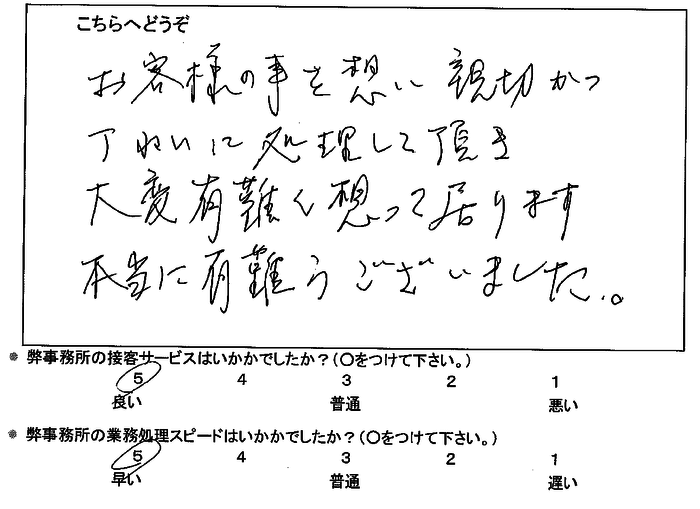 こちらへどうぞ
お客様の事を想い親切かつ
丁ねいに処理して頂き
大変有難く想って居ります
本当に有難うございました。
※ 弊事務所の接客サービスはいかかでしたか？(〇をつけて下さい。)
5 4 3 2 1
良い 普通 悪い
※ 弊事務所の業務処理スピードはいかかでしたか？(〇をつけて下さい。)
5 4 3 2 1
早い 普通 遅い